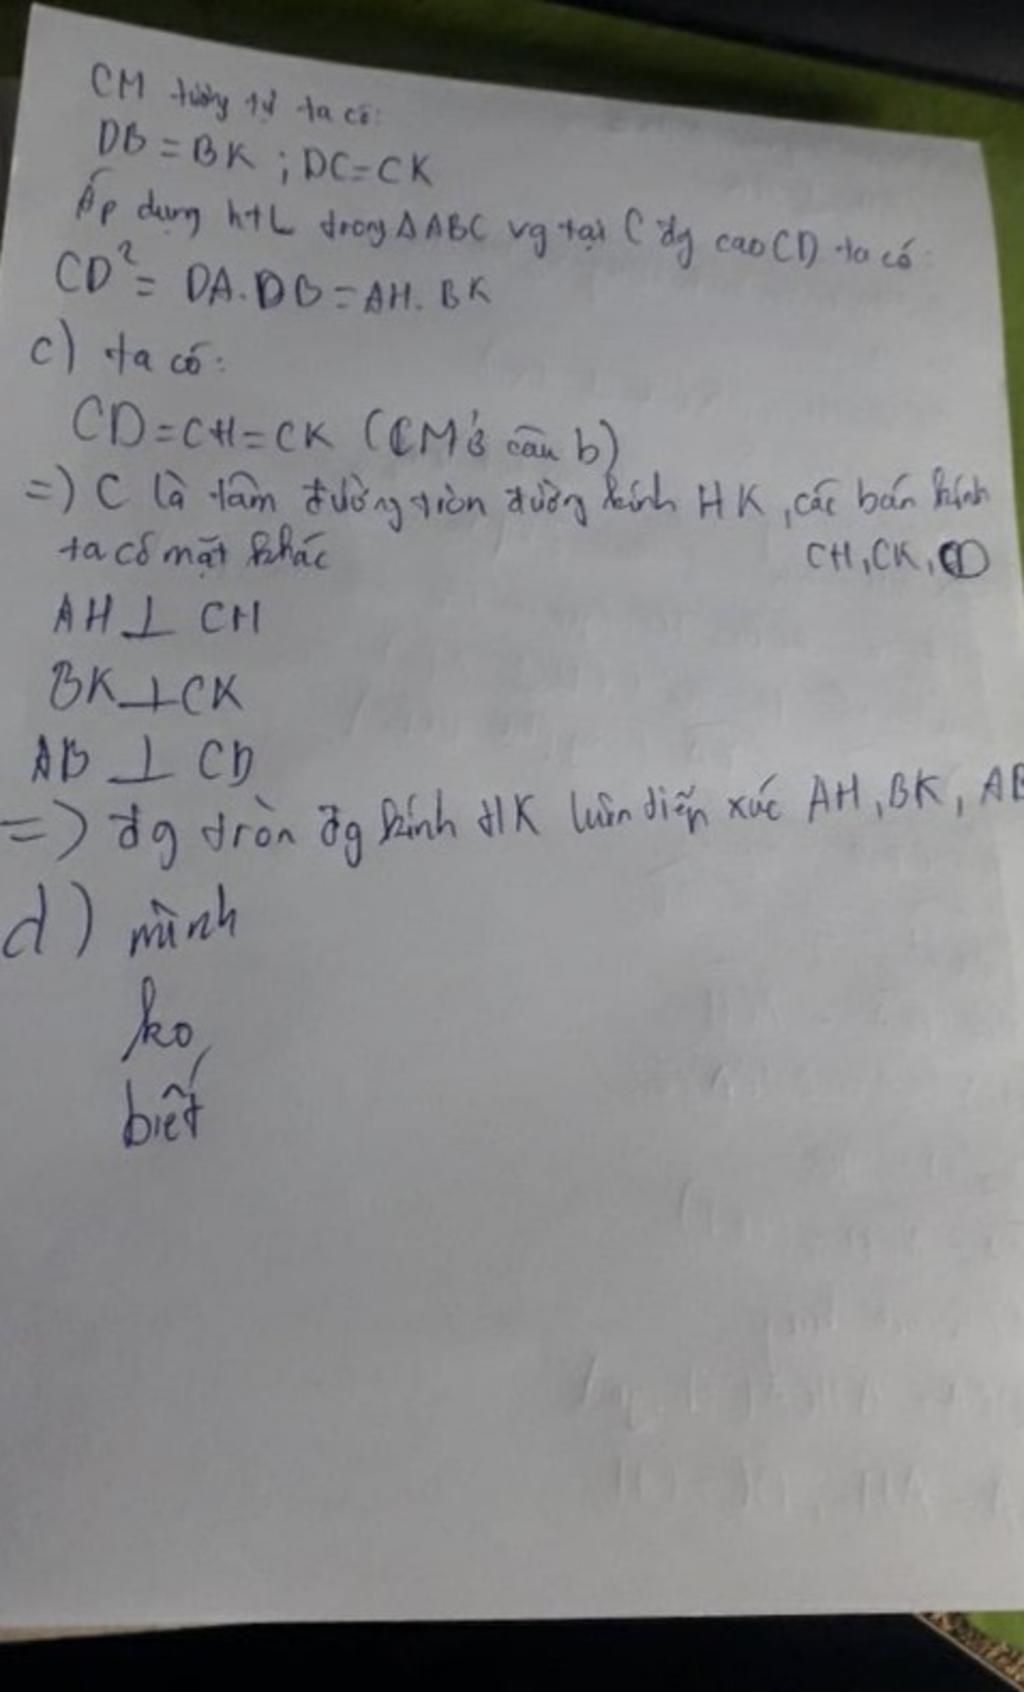 CM tương tự ta có:
DB = BK ; DC = CK
Áp dụng htL trong ΔABC vg tại C đg cao CD ta có:
CD² = DA.DB = AH.BK
c) ta có:
CD = CH = CK (CM ở câu b)
=) C là tâm đường tròn đường kính HK, các bán kính
CH, CK, CD
ta có mặt khác
AH ⊥ CH
BK ⊥ CK
AB ⊥ CD
=) đg tròn đg kính HK luôn tiếp xúc AH, BK, AB
d) mình
ko
biết